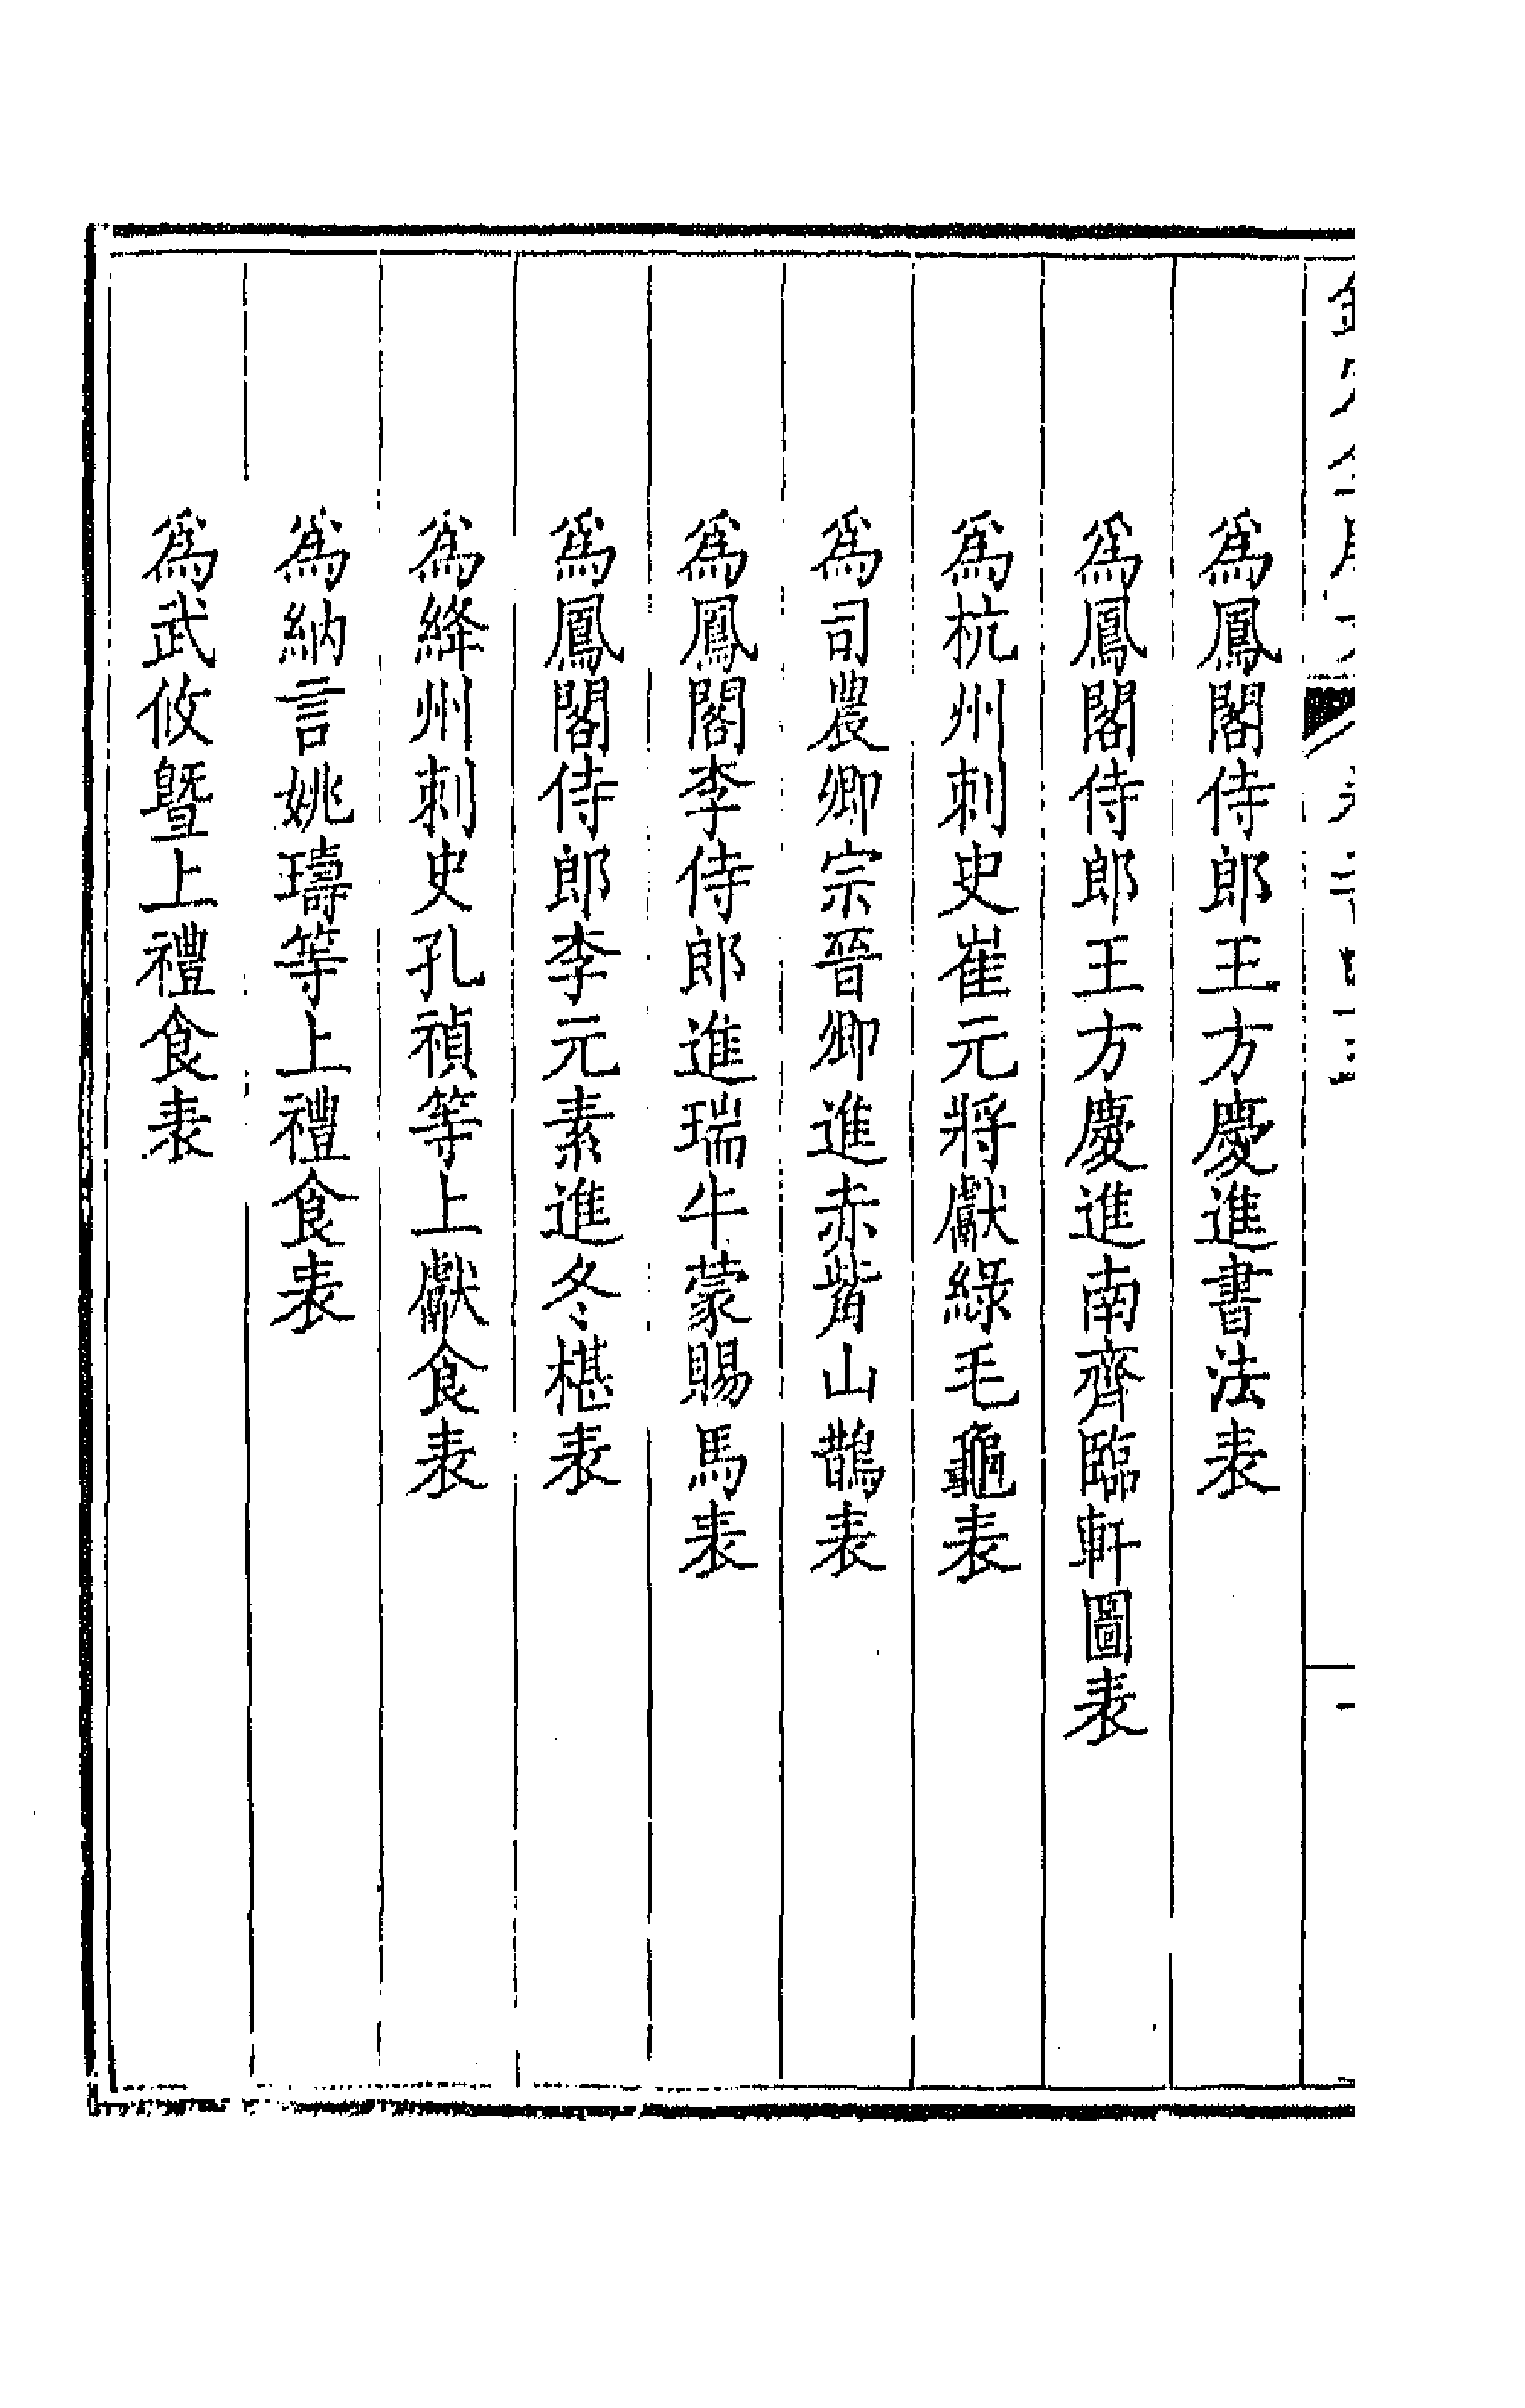 爲鳳閣侍郎王方慶進書法表
爲鳳閣侍郎王方慶進南齊臨軒圖表
爲杭州刺史崔元將獻綠毛龜表
爲司農卿宗晉卿進赤觜山鵲表
爲鳳閣李侍郎進瑞牛蒙賜馬表
爲鳳閣侍郎李元素進冬椹表
爲絳州刺史孔禎等上獻食表
爲納言姚璹等上禮食表
爲武攸暨上禮食表